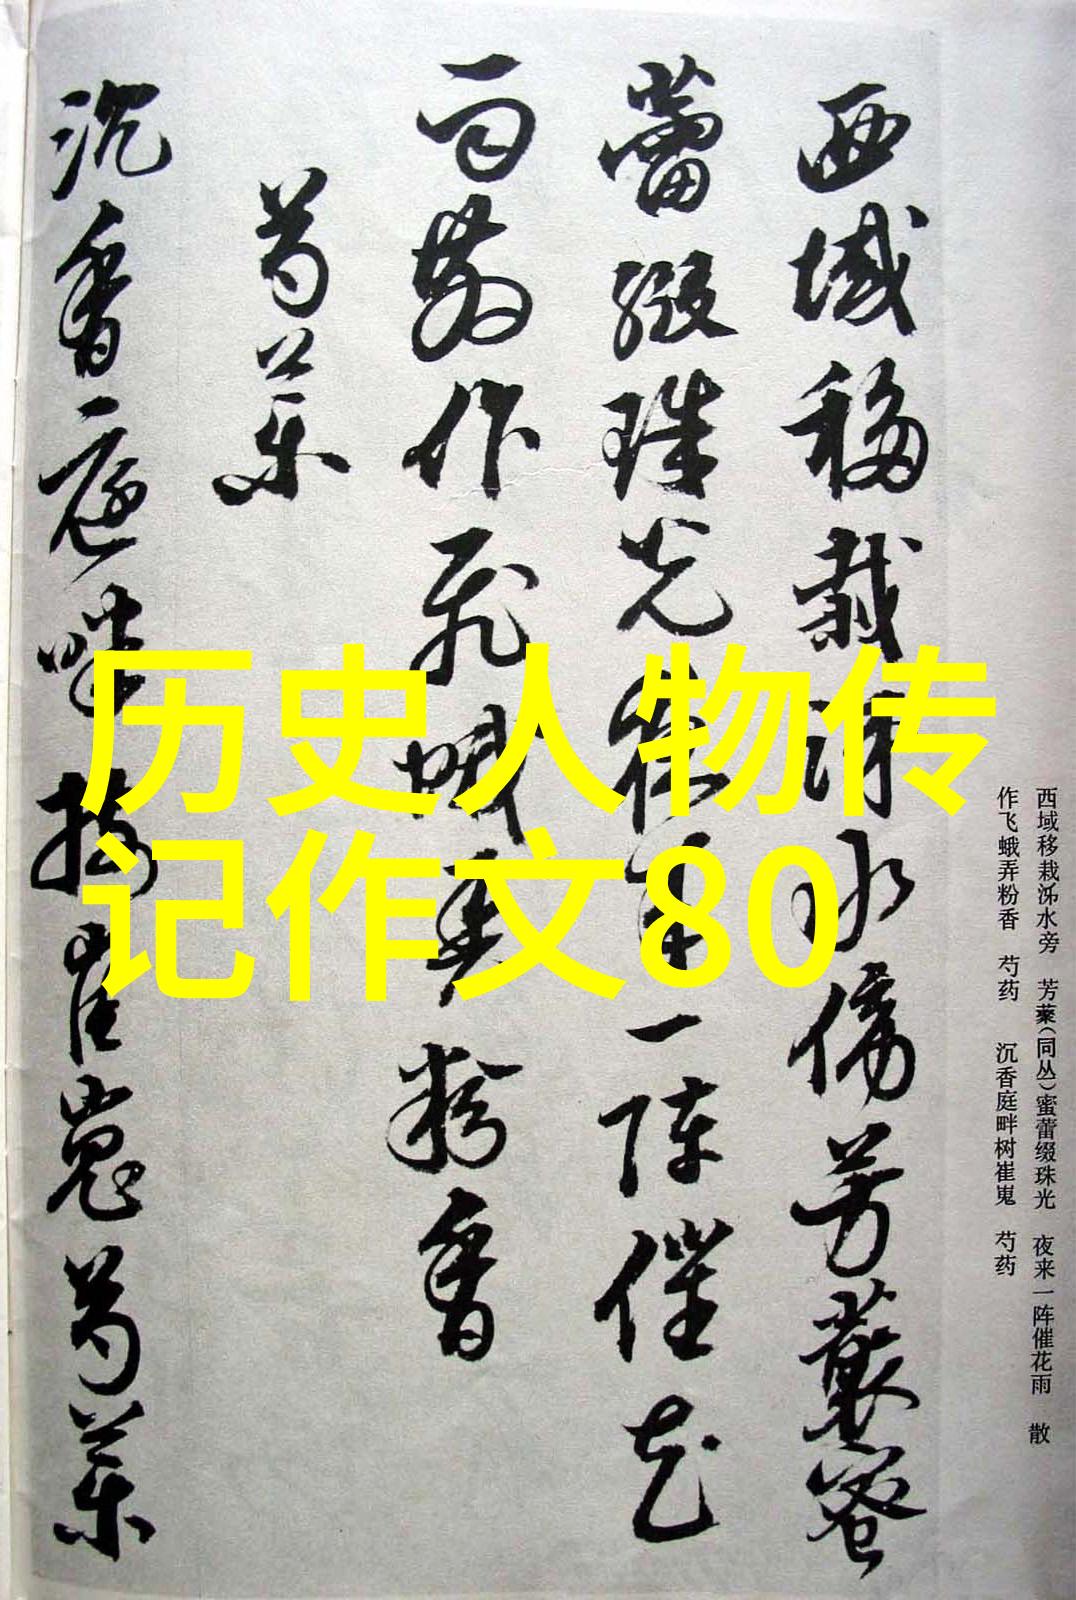 西域移栽泺水傍芳藂蜜
蕾缀珠光夜来一阵催花
雨散作飞蛾弄粉香
芍药
沉香庭畔树崔嵬芍药
历史人物传
记作文80
西域移栽泺水旁 芳藂(同丛)蜜蕾缀珠光 夜来一阵催花雨 散
作飞蛾弄粉香 芍药 沉香庭畔树崔嵬 芍药